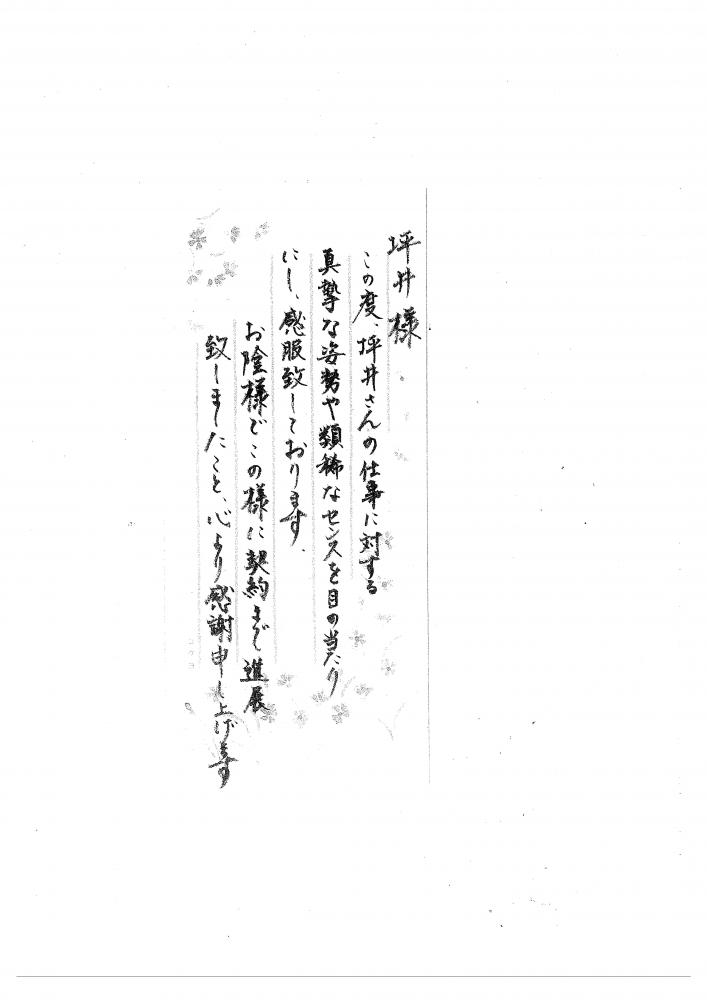 坪井様
この度、坪井さんの仕事に対する
真摯な姿勢や類稀なセンスを目の当たり
にし、感服致しております。
お陰様でこの様に契約まで進展
致しましたこと、心より感謝申し上げます